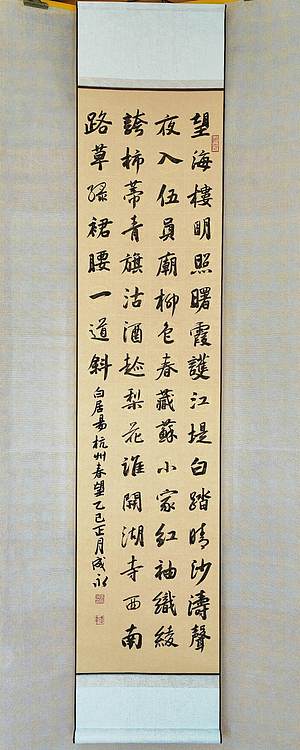 望海樓明照曙霞護江堤白踏晴沙濤聲
夜入伍員廟柳色春藏蘇小家紅袖織綾
誇柿蒂青旗沽酒趁梨花誰開湖寺西南
路草綠裙腰一道斜
白居易杭州春望乙巳正月成永